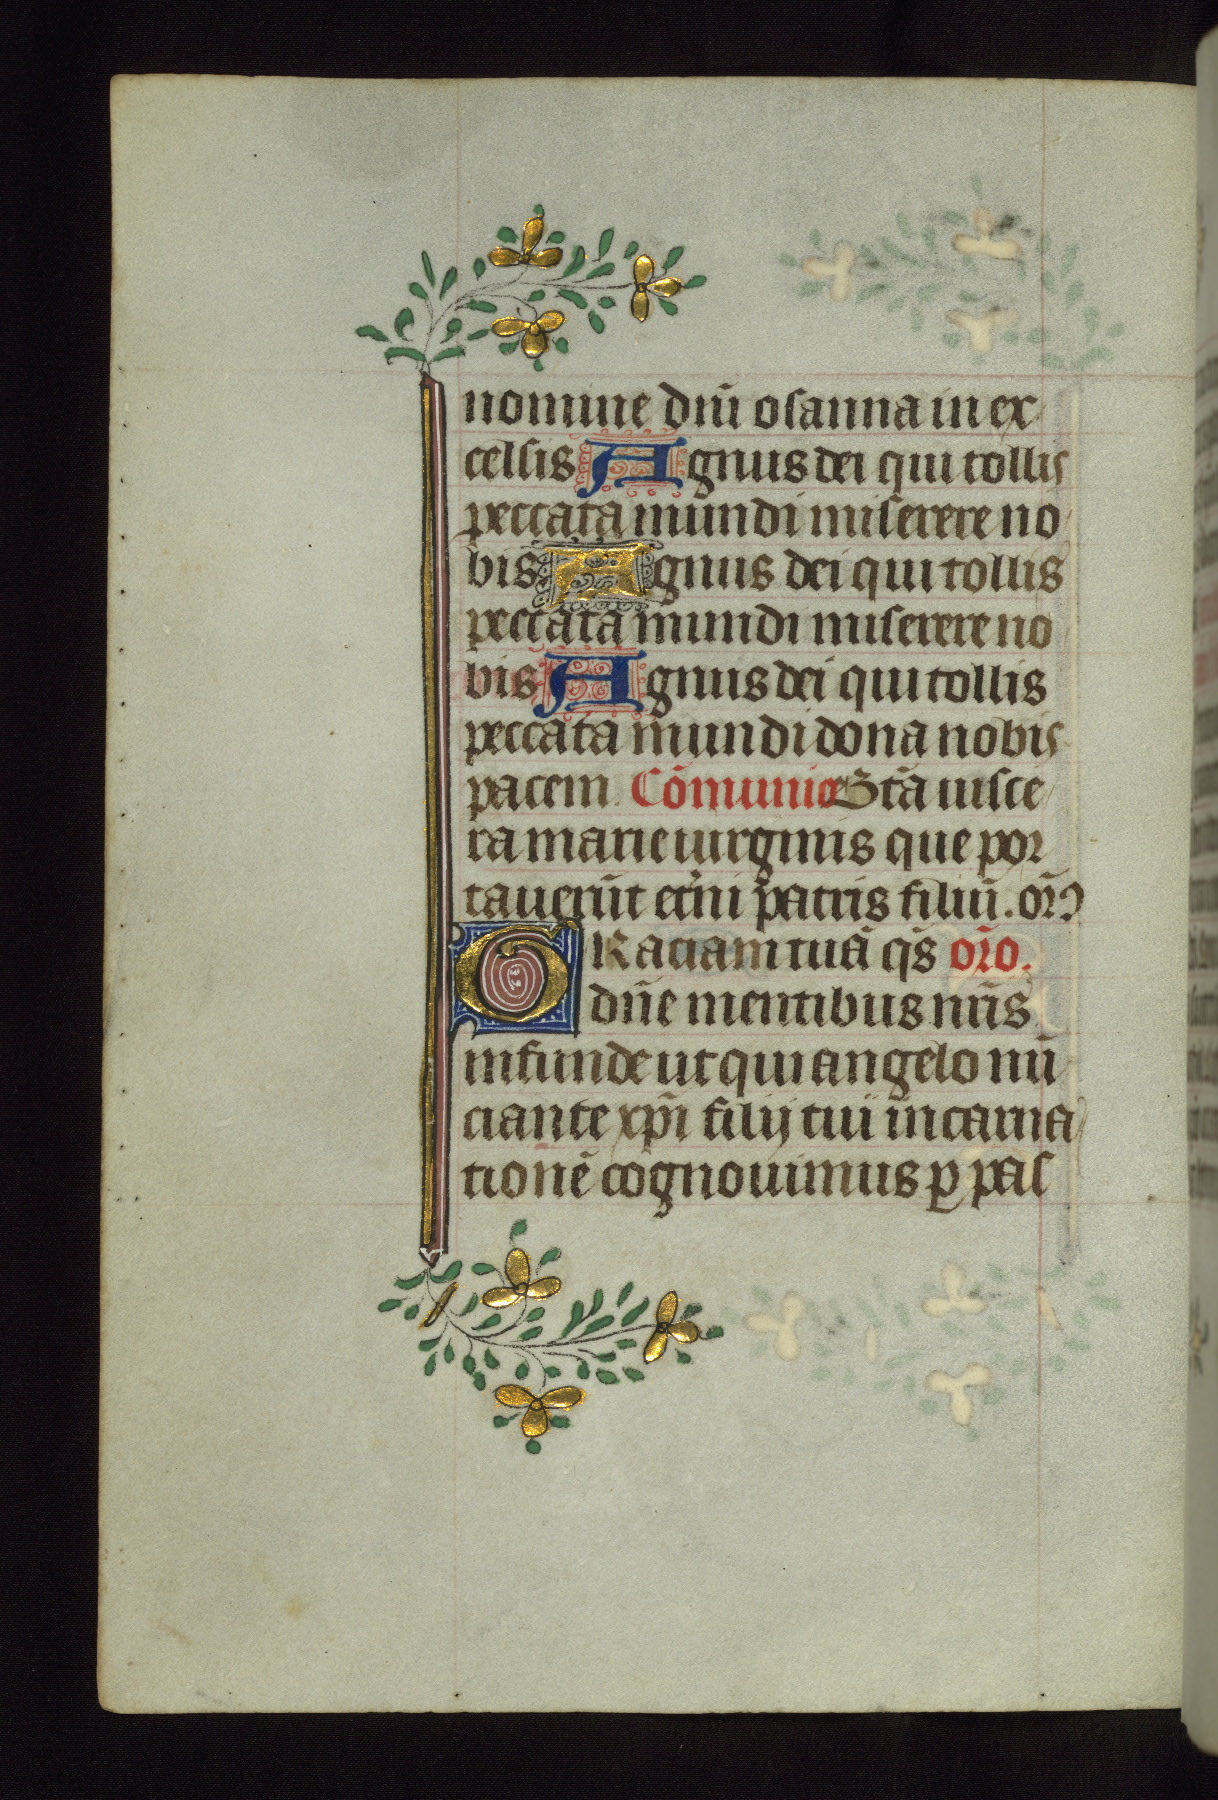 nomine dñi osanna in ex
celsis Agnus dei qui tollis
peccata mundi miserere no
bis Agnus dei qui tollis
peccata mundi miserere no
bis Agnus dei qui tollis
peccata mundi dona nobis
pacem. Cõmunio Btã uisce
ra marie uirginis que por
tauerũt etñi patris filiũ. orõ
GRaciam tuã q̃s orõ.
dñe mentibus nr̃is
infunde ut qui angelo nũ
ciante xp̃i filij tui incarna
tionẽ cognouimus ꝑ pas